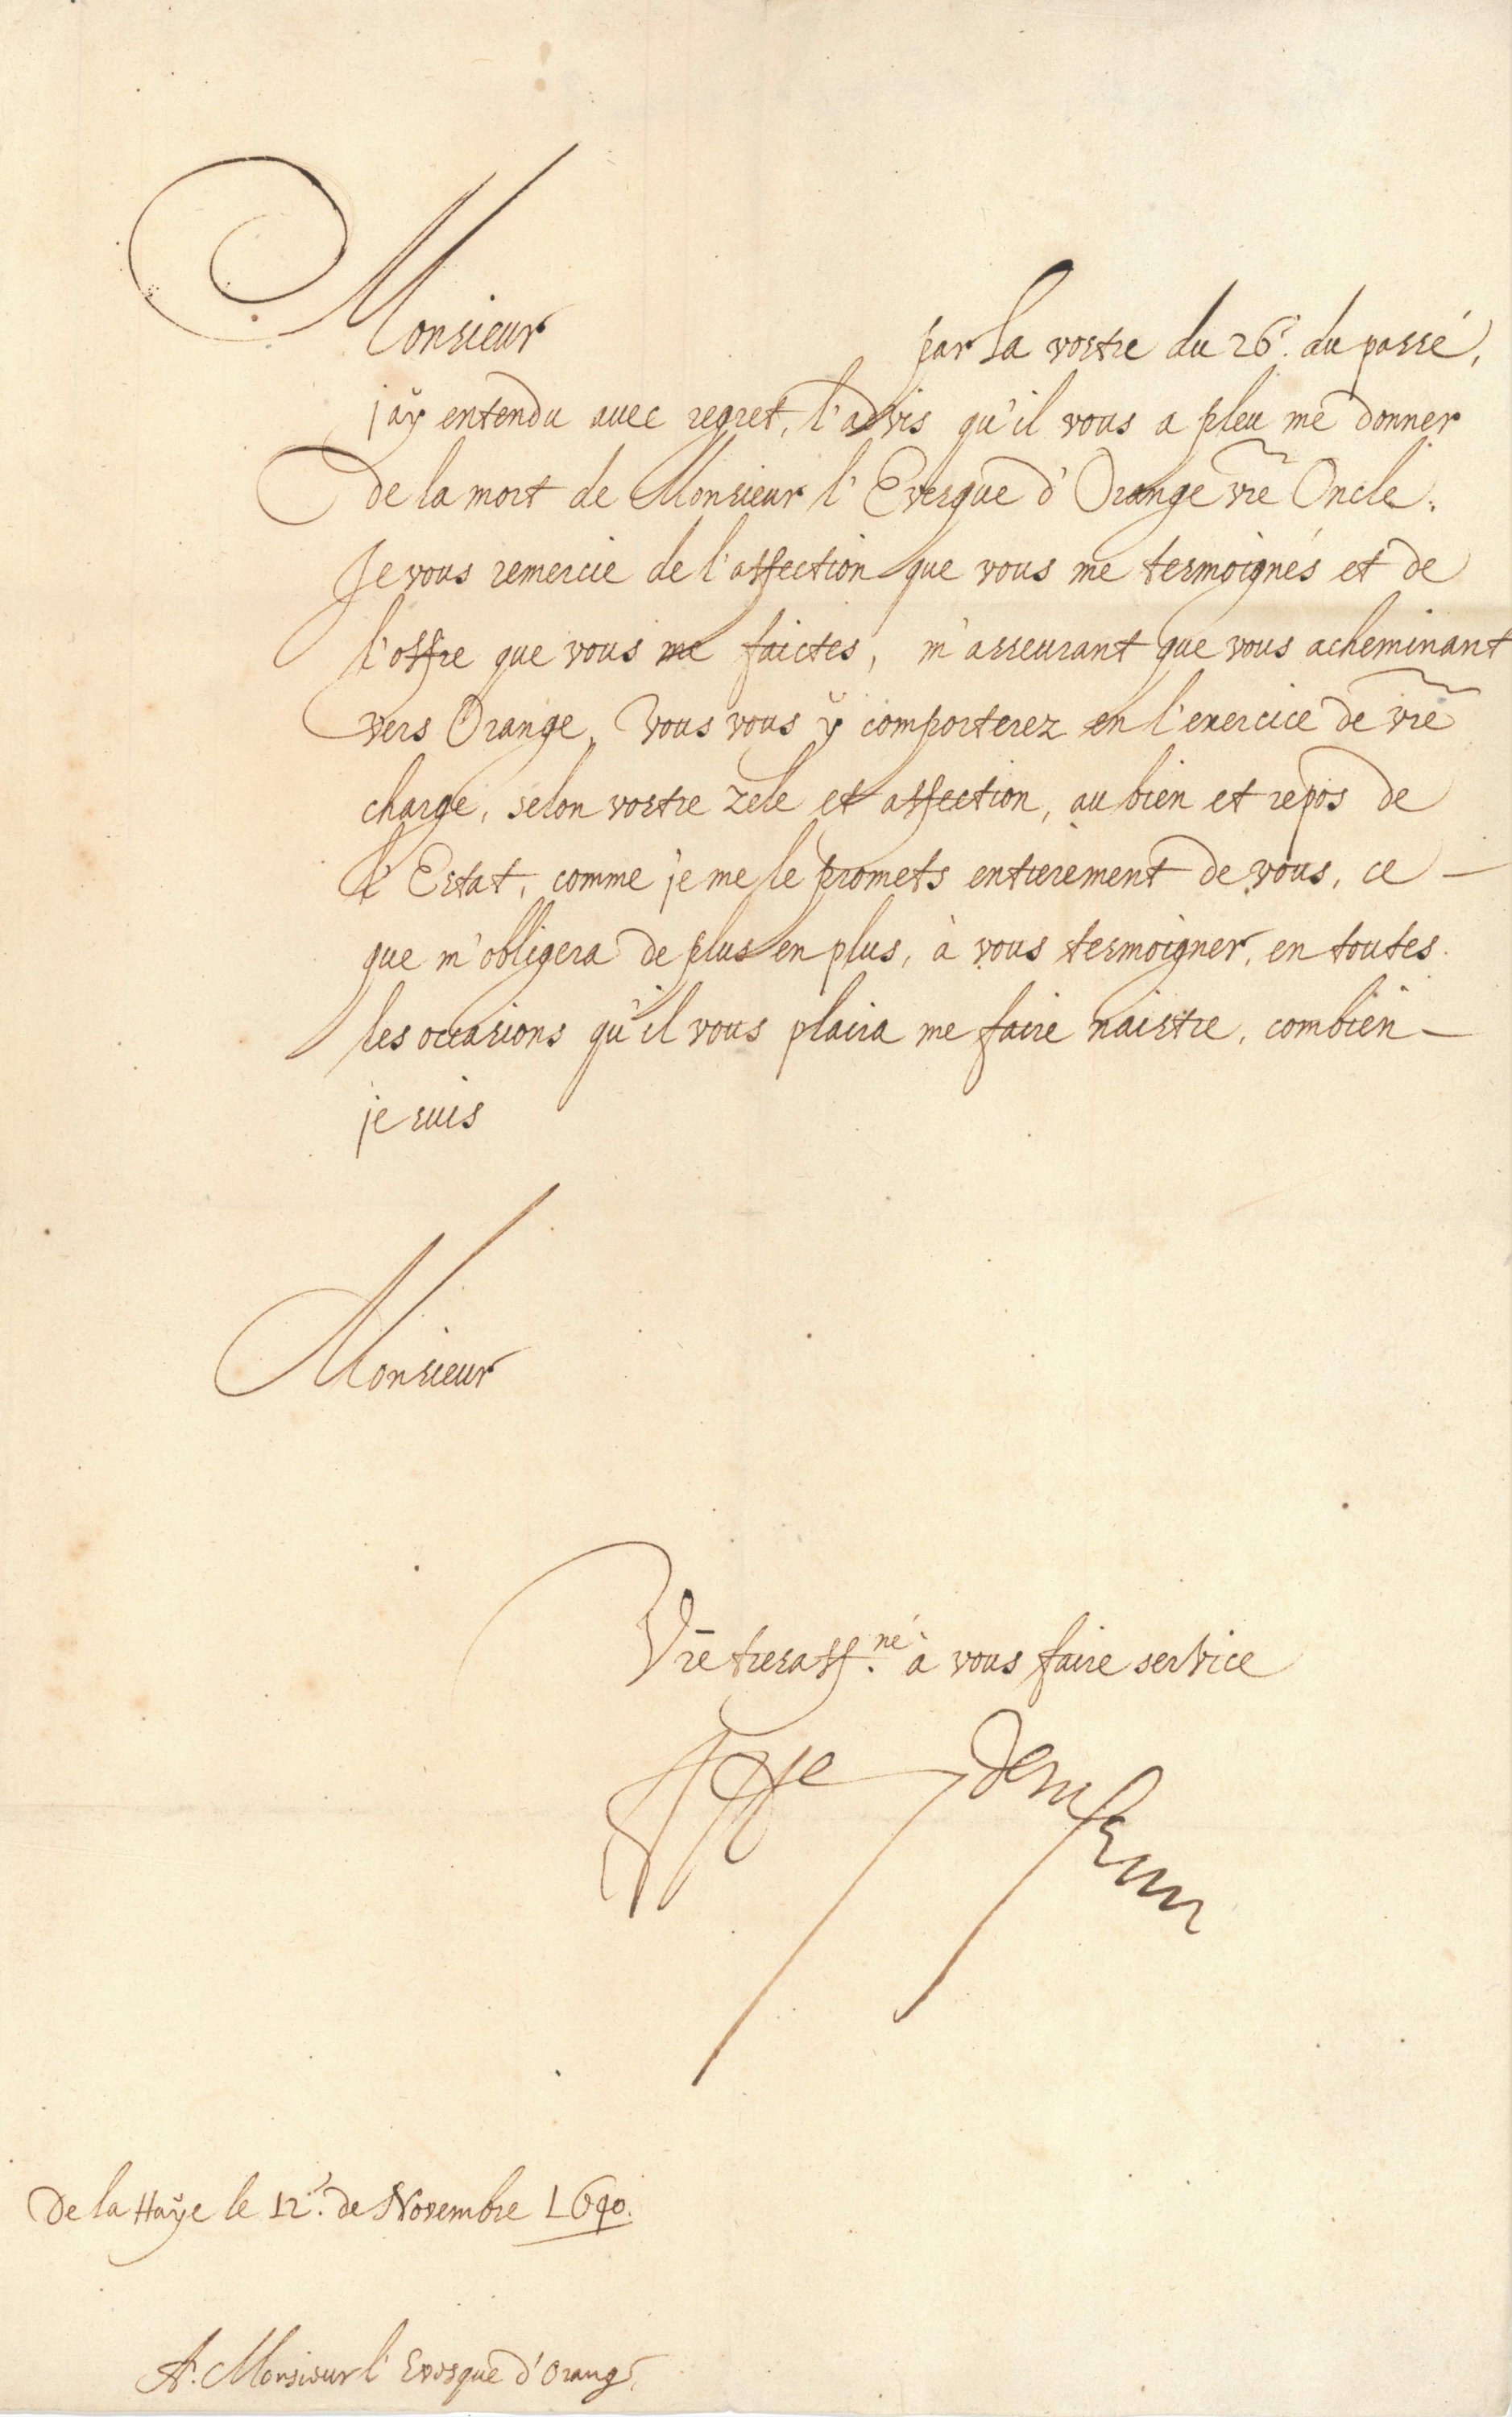 Monsieur par la vostre du 26e. du passé,
j'aÿ entendu avec regret, l'advis qu'il vous a pleu me donner
de la mort de Monsieur l'Evesque d'Orange vre Oncle.
Je vous remercie de l'affection que vous me tesmoignés et de
l'offre que vous me faictes, m'asseurant que vous acheminant
vers Orange, vous vous ÿ comporterez en l'exercice de vre
charge, selon vostre zele et affection, au bien et repos de
l'Estat, comme je me le promets entierement de vous, ce –
que m'obligera de plus en plus, à vous tesmoigner, en toutes
les occasions qu'il vous plaira me faire naistre, combien –
je suis
Monsieur
Vre tresaff.né à vous faire service
De la Haÿe le 12e. de Novembre 1640.
A. Monsieur l'Evesque d'Orange.